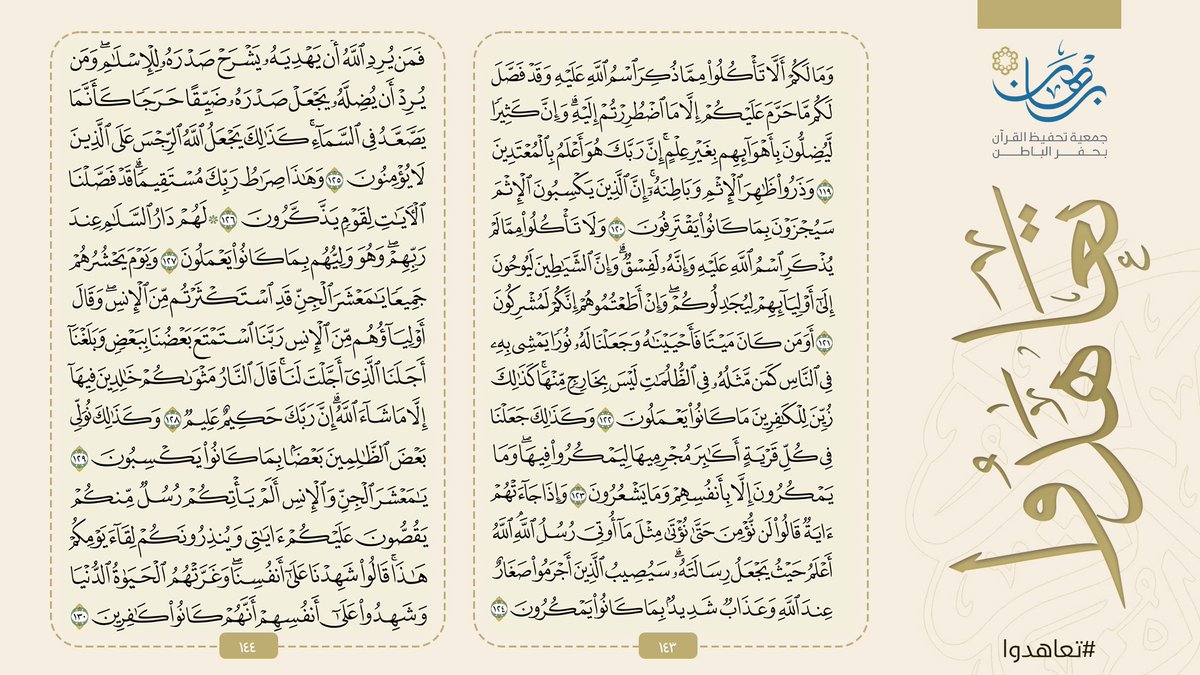 برهان
جمعية تحفيظ القرآن
بحفر الباطن
تعاهدوا
#تعاهدوا
وَمَا لَكُمْ أَلَّا تَأْكُلُوا۟ مِمَّا ذُكِرَ ٱسْمُ ٱللَّهِ عَلَيْهِ وَقَدْ فَصَّلَ
لَكُم مَّا حَرَّمَ عَلَيْكُمْ إِلَّا مَا ٱضْطُرِرْتُمْ إِلَيْهِ ۗ وَإِنَّ كَثِيرًا
لَّيُضِلُّونَ بِأَهْوَآئِهِم بِغَيْرِ عِلْمٍ ۗ إِنَّ رَبَّكَ هُوَ أَعْلَمُ بِٱلْمُعْتَدِينَ
١١٩ وَذَرُوا۟ ظَٰهِرَ ٱلْإِثْمِ وَبَاطِنَهُۥٓ ۚ إِنَّ ٱلَّذِينَ يَكْسِبُونَ ٱلْإِثْمَ
سَيُجْزَوْنَ بِمَا كَانُوا۟ يَقْتَرِفُونَ ١٢٠ وَلَا تَأْكُلُوا۟ مِمَّا لَمْ
يُذْكَرِ ٱسْمُ ٱللَّهِ عَلَيْهِ وَإِنَّهُۥ لَفِسْقٌ ۗ وَإِنَّ ٱلشَّيَٰطِينَ لَيُوحُونَ
إِلَىٰٓ أَوْلِيَآئِهِمْ لِيُجَٰدِلُوكُمْ ۖ وَإِنْ أَطَعْتُمُوهُمْ إِنَّكُمْ لَمُشْرِكُونَ
١٢١ أَوَمَن كَانَ مَيْتًا فَأَحْيَيْنَٰهُ وَجَعَلْنَا لَهُۥ نُورًا يَمْشِى بِهِۦ
فِى ٱلنَّاسِ كَمَن مَّثَلُهُۥ فِى ٱلظُّلُمَٰتِ لَيْسَ بِخَارِجٍ مِّنْهَا ۚ كَذَٰلِكَ
زُيِّنَ لِلْكَٰفِرِينَ مَا كَانُوا۟ يَعْمَلُونَ ١٢٢ وَكَذَٰلِكَ جَعَلْنَا
فِى كُلِّ قَرْيَةٍ أَكَٰبِرَ مُجْرِمِيهَا لِيَمْكُرُوا۟ فِيهَا ۖ وَمَا
يَمْكُرُونَ إِلَّا بِأَنفُسِهِمْ وَمَا يَشْعُرُونَ ١٢٣ وَإِذَا جَآءَتْهُمْ
ءَايَةٌ قَالُوا۟ لَن نُّؤْمِنَ حَتَّىٰ نُؤْتَىٰ مِثْلَ مَآ أُوتِىَ رُسُلُ ٱللَّهِ ۘ ٱللَّهُ
أَعْلَمُ حَيْثُ يَجْعَلُ رِسَالَتَهُۥ ۗ سَيُصِيبُ ٱلَّذِينَ أَجْرَمُوا۟ صَغَارٌ
عِندَ ٱللَّهِ وَعَذَابٌ شَدِيدٌۢ بِمَا كَانُوا۟ يَمْكُرُونَ ١٢٤
١٤٣
فَمَن يُرِدِ ٱللَّهُ أَن يَهْدِيَهُۥ يَشْرَحْ صَدْرَهُۥ لِلْإِسْلَٰمِ ۖ وَمَن
يُرِدْ أَن يُضِلَّهُۥ يَجْعَلْ صَدْرَهُۥ ضَيِّقًا حَرَجًا كَأَنَّمَا
يَصَّعَّدُ فِى ٱلسَّمَآءِ ۚ كَذَٰلِكَ يَجْعَلُ ٱللَّهُ ٱلرِّجْسَ عَلَى ٱلَّذِينَ
لَا يُؤْمِنُونَ ١٢٥ وَهَٰذَا صِرَٰطُ رَبِّكَ مُسْتَقِيمًا ۗ قَدْ فَصَّلْنَا
ٱلْءَايَٰتِ لِقَوْمٍ يَذَّكَّرُونَ ١٢٦ ۞ لَهُمْ دَارُ ٱلسَّلَٰمِ عِندَ
رَبِّهِمْ ۖ وَهُوَ وَلِيُّهُم بِمَا كَانُوا۟ يَعْمَلُونَ ١٢٧ وَيَوْمَ يَحْشُرُهُمْ
جَمِيعًا يَٰمَعْشَرَ ٱلْجِنِّ قَدِ ٱسْتَكْثَرْتُم مِّنَ ٱلْإِنسِ ۖ وَقَالَ
أَوْلِيَآؤُهُم مِّنَ ٱلْإِنسِ رَبَّنَا ٱسْتَمْتَعَ بَعْضُنَا بِبَعْضٍ وَبَلَغْنَآ
أَجَلَنَا ٱلَّذِىٓ أَجَّلْتَ لَنَا ۚ قَالَ ٱلنَّارُ مَثْوَىٰكُمْ خَٰلِدِينَ فِيهَآ
إِلَّا مَا شَآءَ ٱللَّهُ ۗ إِنَّ رَبَّكَ حَكِيمٌ عَلِيمٌ ١٢٨ وَكَذَٰلِكَ نُوَلِّى
بَعْضَ ٱلظَّٰلِمِينَ بَعْضًۢا بِمَا كَانُوا۟ يَكْسِبُونَ ١٢٩
يَٰمَعْشَرَ ٱلْجِنِّ وَٱلْإِنسِ أَلَمْ يَأْتِكُمْ رُسُلٌ مِّنكُمْ
يَقُصُّونَ عَلَيْكُمْ ءَايَٰتِى وَيُنذِرُونَكُمْ لِقَآءَ يَوْمِكُمْ
هَٰذَا ۚ قَالُوا۟ شَهِدْنَا عَلَىٰٓ أَنفُسِنَا ۖ وَغَرَّتْهُمُ ٱلْحَيَوٰةُ ٱلدُّنْيَا
وَشَهِدُوا۟ عَلَىٰٓ أَنفُسِهِمْ أَنَّهُمْ كَانُوا۟ كَٰفِرِينَ ١٣٠
١٤٤